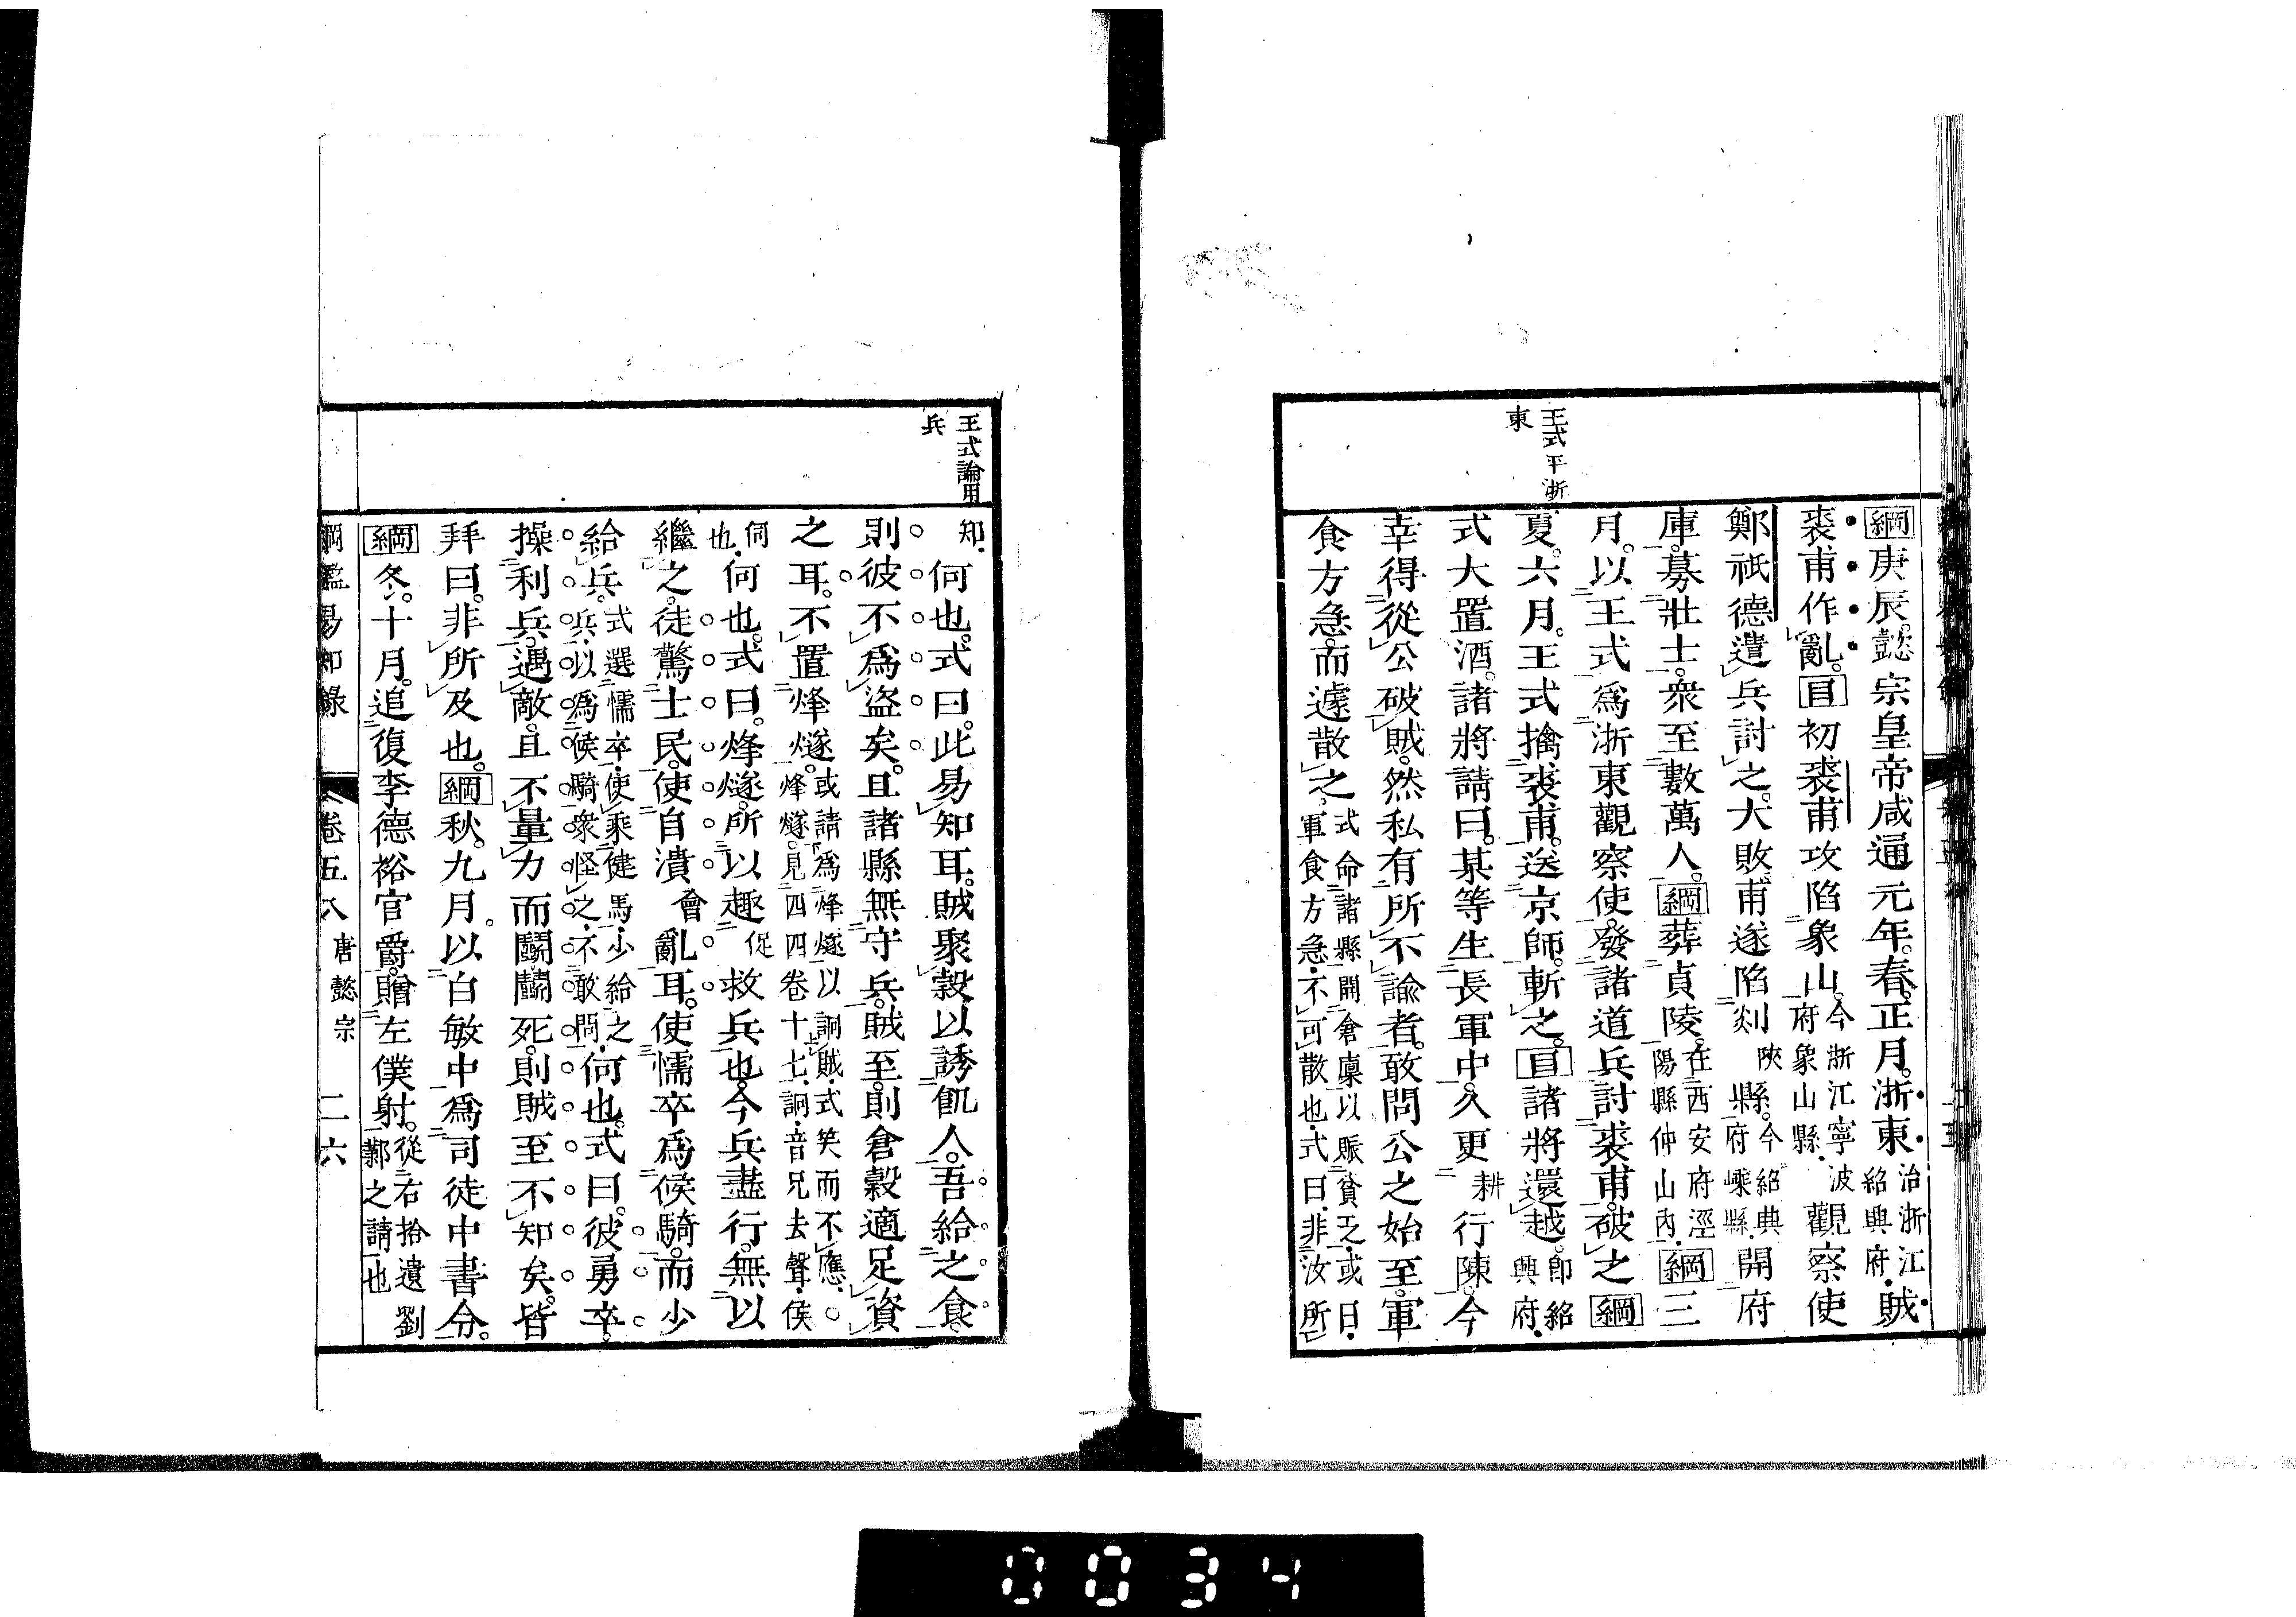 王式平浙
東
綱庚辰。懿宗皇帝咸通元年。春。正月。浙東治浙江紹興府。賊
裘甫作亂。目初裘甫攻陷象山。今浙江寧波府象山縣。觀察使
鄭祇德遣兵討之。大敗。甫遂陷剡陝縣。今紹興府嵊縣。開府
庫。募壯士。衆至數萬人。綱葬貞陵。在西安府涇陽縣仲山內。綱三
月。以王式爲浙東觀察使。發諸道兵討裘甫。破之綱
夏。六月。王式擒裘甫。送京師。斬之。目諸將還越。卽紹興府。
式大置酒。諸將請曰。某等生長軍中。久更耕行陳。今
幸得從公破賊。然私有所不諭者。敢問公之始至。軍
食方急。而遽散之。式命諸縣開倉廩以賑貧乏。或曰。軍食方急。不可散也。式曰。非汝所
王式論用
兵
知。何也。式曰。此易知耳。賊聚穀以誘飢人。吾給之食。
則彼不爲盜矣。且諸縣無守兵。賊至。則倉穀適足資
之耳。不置烽燧。或請爲烽燧以詗賊。式笑而不應。烽燧。見四四卷十七。詗。音兄去聲。候
伺也。何也。式曰。烽燧。所以趣促救兵也。今兵盡行。無以
繼之。徒驚士民。使自潰會亂耳。使懦卒爲候騎。而少
給兵。式選懦卒。使乘健馬。少給之兵。以爲候騎。衆怪之。不敢問。何也。式曰。彼勇卒。
操利兵。遇敵。且不量力而鬭。鬭死。則賊至不知矣。皆
拜曰。非所及也。綱秋。九月。以白敏中爲司徒中書令。
綱冬。十月。追復李德裕官爵。贈左僕射。從右拾遺劉鄴之請也
綱鑑易知錄
卷五八
唐懿宗
二六
0034